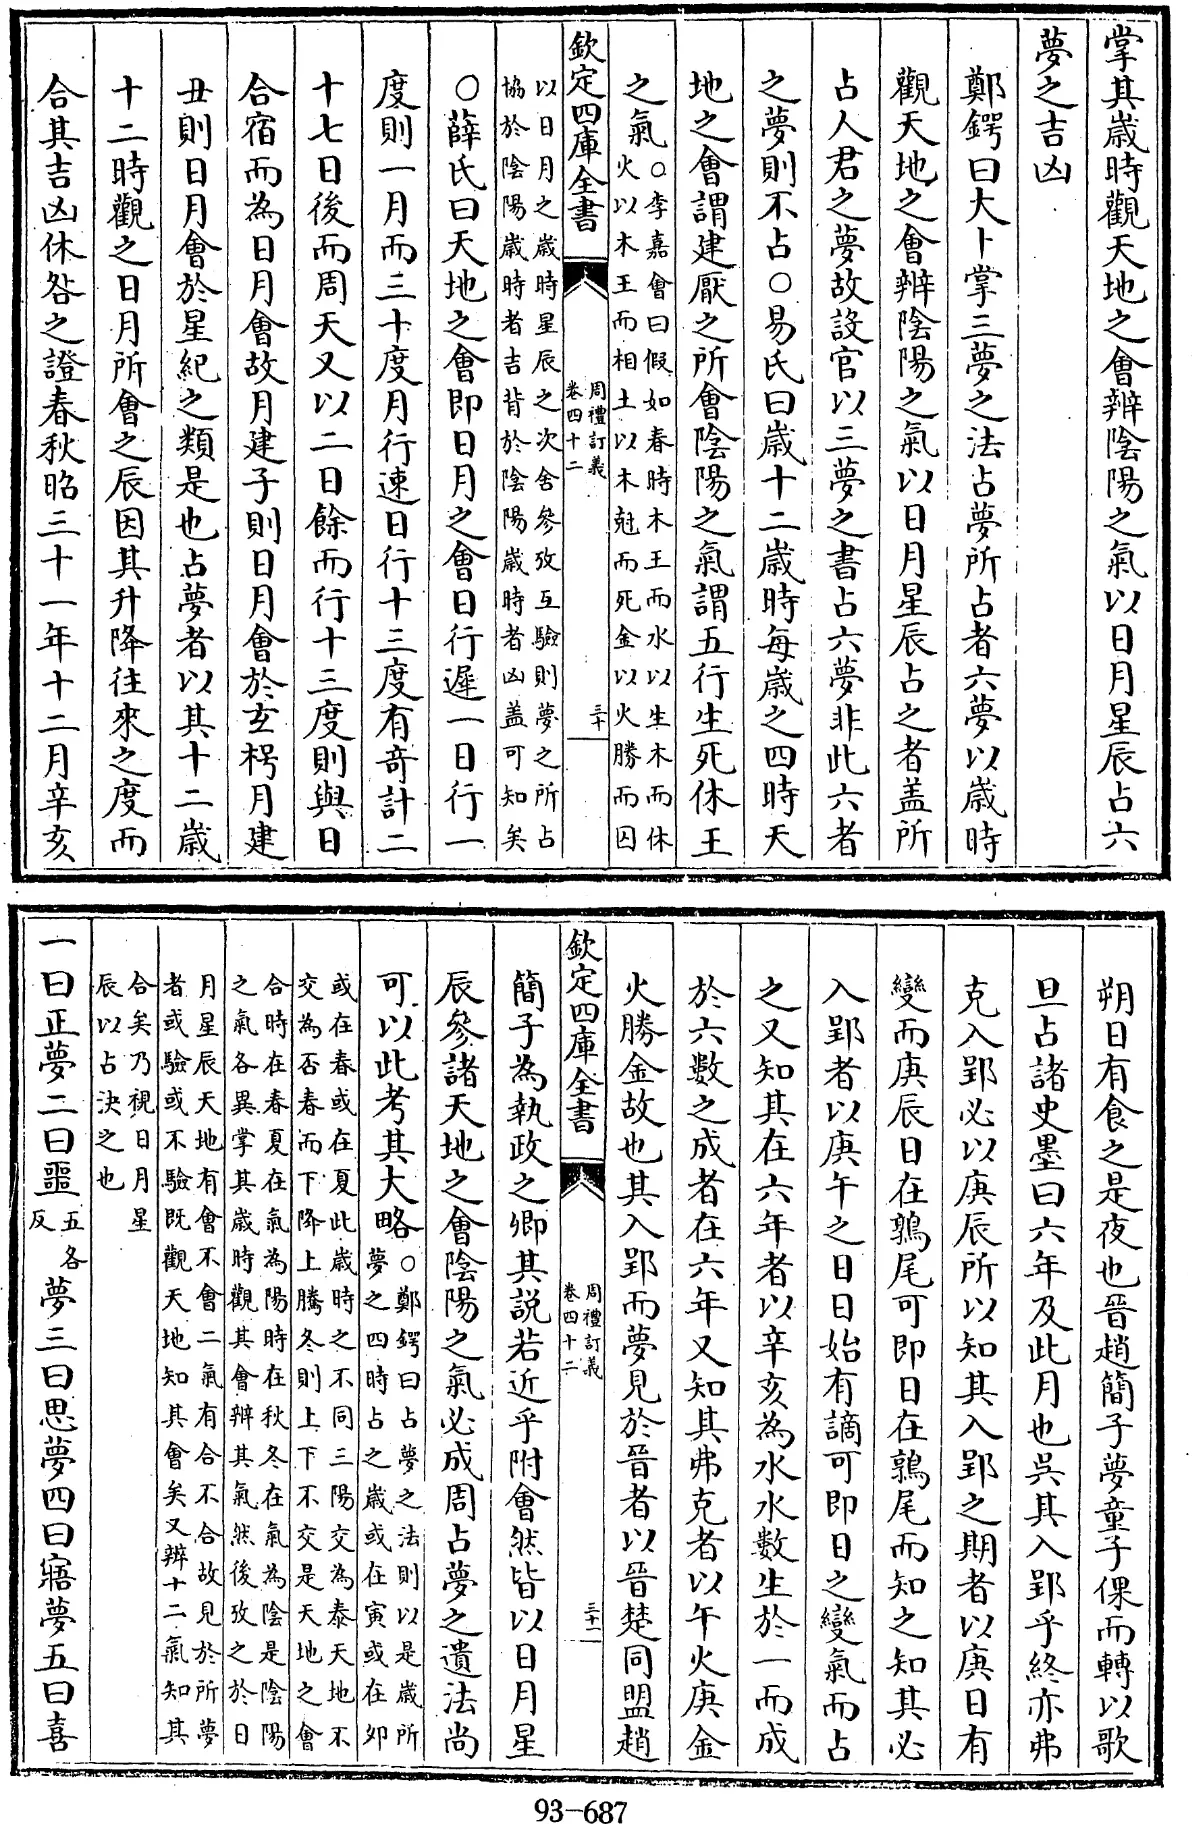 掌其歲時觀天地之會辨陰陽之氣以日月星辰占六
夢之吉凶
鄭鍔曰大卜掌三夢之法占夢所占者六夢以歲時
觀天地之會辨陰陽之氣以日月星辰占之者盖所
占人君之夢故設官以三夢之書占六夢非此六者
之夢則不占○易氏曰歲十二歲時每歲之四時天
地之會謂建厭之所會陰陽之氣謂五行生死休王
之氣○李嘉會曰假如春時木王而水以生木而休
火以木王而相土以木尅而死金以火勝而囚
欽定四庫全書
周禮訂義
卷四十二
三十
以日月之歲時星辰之次舍參攷互驗則夢之所占
協於陰陽歲時者吉背於陰陽歲時者凶盖可知矣
○薛氏曰天地之會即日月之會日行遲一日行一
度則一月而三十度月行速日行十三度有竒計二
十七日後而周天又以二日餘而行十三度則與日
合宿而為日月會故月建子則日月會於玄枵月建
丑則日月會於星紀之類是也占夢者以其十二歲
十二時觀之日月所會之辰因其升降往來之度而
合其吉凶休咎之證春秋昭三十一年十二月辛亥
朔日有食之是夜也晉趙簡子夢童子倮而轉以歌
旦占諸史墨曰六年及此月也吳其入郢乎終亦弗
克入郢必以庚辰所以知其入郢之期者以庚日有
變而庚辰日在鶉尾可即日在鶉尾而知之知其必
入郢者以庚午之日日始有謫可即日之變氣而占
之又知其在六年者以辛亥為水水數生於一而成
於六數之成者在六年又知其弗克者以午火庚金
火勝金故也其入郢而夢見於晉者以晉楚同盟趙
欽定四庫全書
周禮訂義
卷四十二
三十一
簡子為執政之卿其説若近乎附會然皆以日月星
辰參諸天地之會陰陽之氣必成周占夢之遺法尚
可以此考其大略○鄭鍔曰占夢之法則以是歲所
夢之四時占之歲或在寅或在卯
或在春或在夏此歲時之不同三陽交為泰天地不
交為否春而下降上騰冬則上下不交是天地之會
合時在春夏在氣為陽時在秋冬在氣為陰是陰陽
之氣各異掌其歲時觀其會辨其氣然後攷之於日
月星辰天地有會不會二氣有合不合故見於所夢
者或驗或不驗既觀天地知其會矣又辨十二氣知其
合矣乃視日月星
辰以占決之也
一曰正夢二曰噩五各反夢三曰思夢四曰寤夢五曰喜
93-687